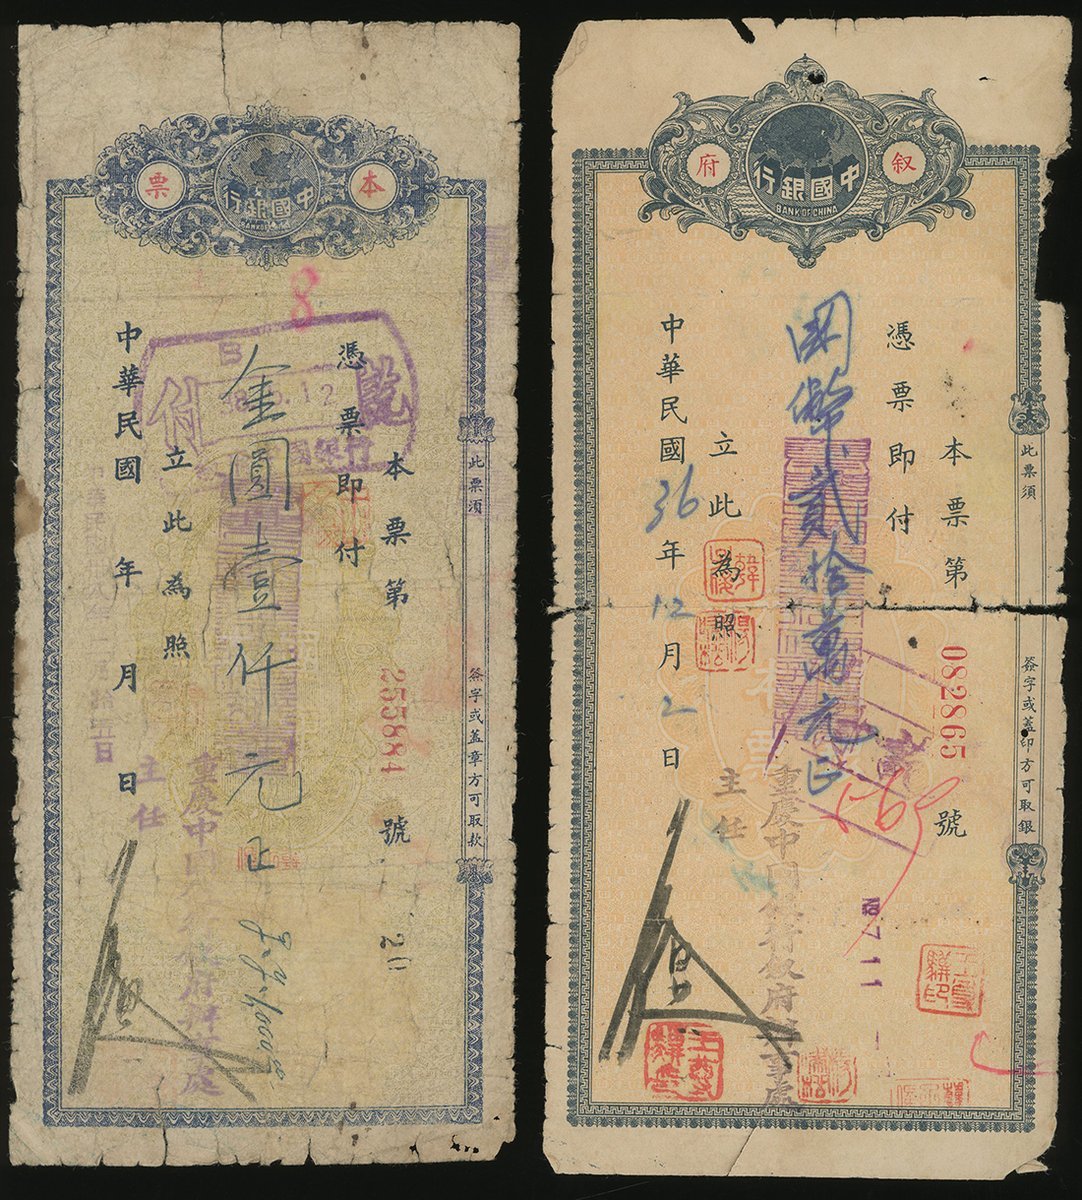 本票
中國銀行
BANK OF CHINA
8
此票須
簽字或蓋章方可取款
本票第255884號
20
憑票即付
金圓壹仟元正
立此為照
中華民國 年 月 日
主任
重慶中國
付訖
叙府
中國銀行
BANK OF CHINA
此票須
簽字或蓋印方可取銀
本票第082865號
憑票即付
國幣貳拾萬元正
立此為照
中華民國36年12月2日
主任
重慶中國銀行叙府
本票
No 711